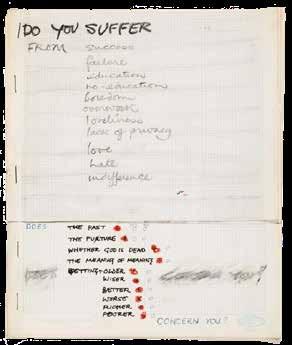 DO YOU SUFFER
FROM success
failure
education
no education
boredom
overwork
loneliness
lack of privacy
love
hate
indifference
DOES THE PAST
THE FURTURE
WHETHER GOD IS DEAD
THE MEANING OF MEANING
GETTING OLDER
WISER
BETTER
WORSE
RICHER
POORER
CONCERN YOU?